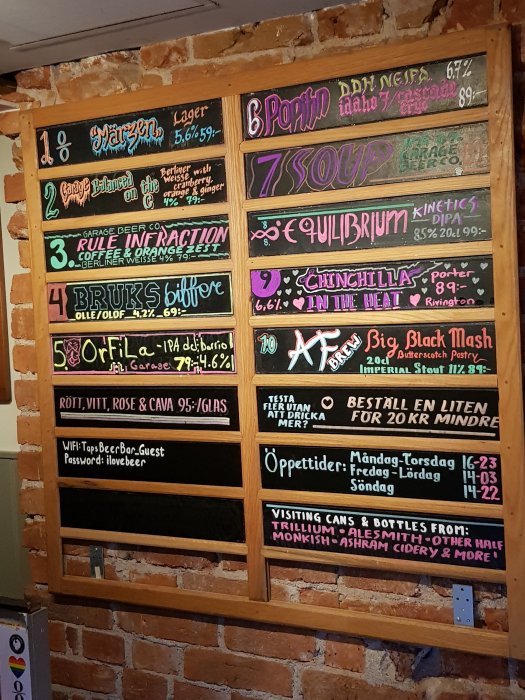 1 % Märzen Lager
5.6% 59:-
2 Garage Balanced on the
Berliner
Weisse with
cranberry,
orange & ginger
4% 79:-
GARAGE BEER CO.
3. RULE INFRACTION
COFFEE & ORANGE ZEST
BERLINER WEISSE 4% 79:-
4 BRUKS biffer
OLLE/OLOF 4.2% 69:-
5. OrFiLa -IPA del barrio!
Garage 79:- 4.6%!
RÖTT, VITT, ROSE & CAVA 95:-/GLAS
WIFI: TapsBeerBar_Guest
Password: ilovebeer
6 DDH NEIPA 6.7%
idaho 7/cascade
cryo 89:-
7 SOUP
GARAGE
BEER CO.
8. EQUILIBRIUM KINETICS
DIPA
8.5% 20cl 99:-
9 CHINCHILLA porter
89:-
6,6% IN THE HEAT Rivington
10 AF BREW Big Black Mash
Butterscotch Pastry
20cl
IMPERIAL Stout 11% 89:-
TESTA
FLER UTAN
ATT DRICKA
MER?
BESTÄLL EN LITEN
FÖR 20 KR MINDRE
Öppettider: Måndag-Torsdag 16-23
Fredag-Lördag 14-03
Söndag 14-22
VISITING CANS & BOTTLES FROM:
TRILLIUM • ALESMITH • OTHER HALF
MONKISH • ASHRAM CIDERY & MORE!